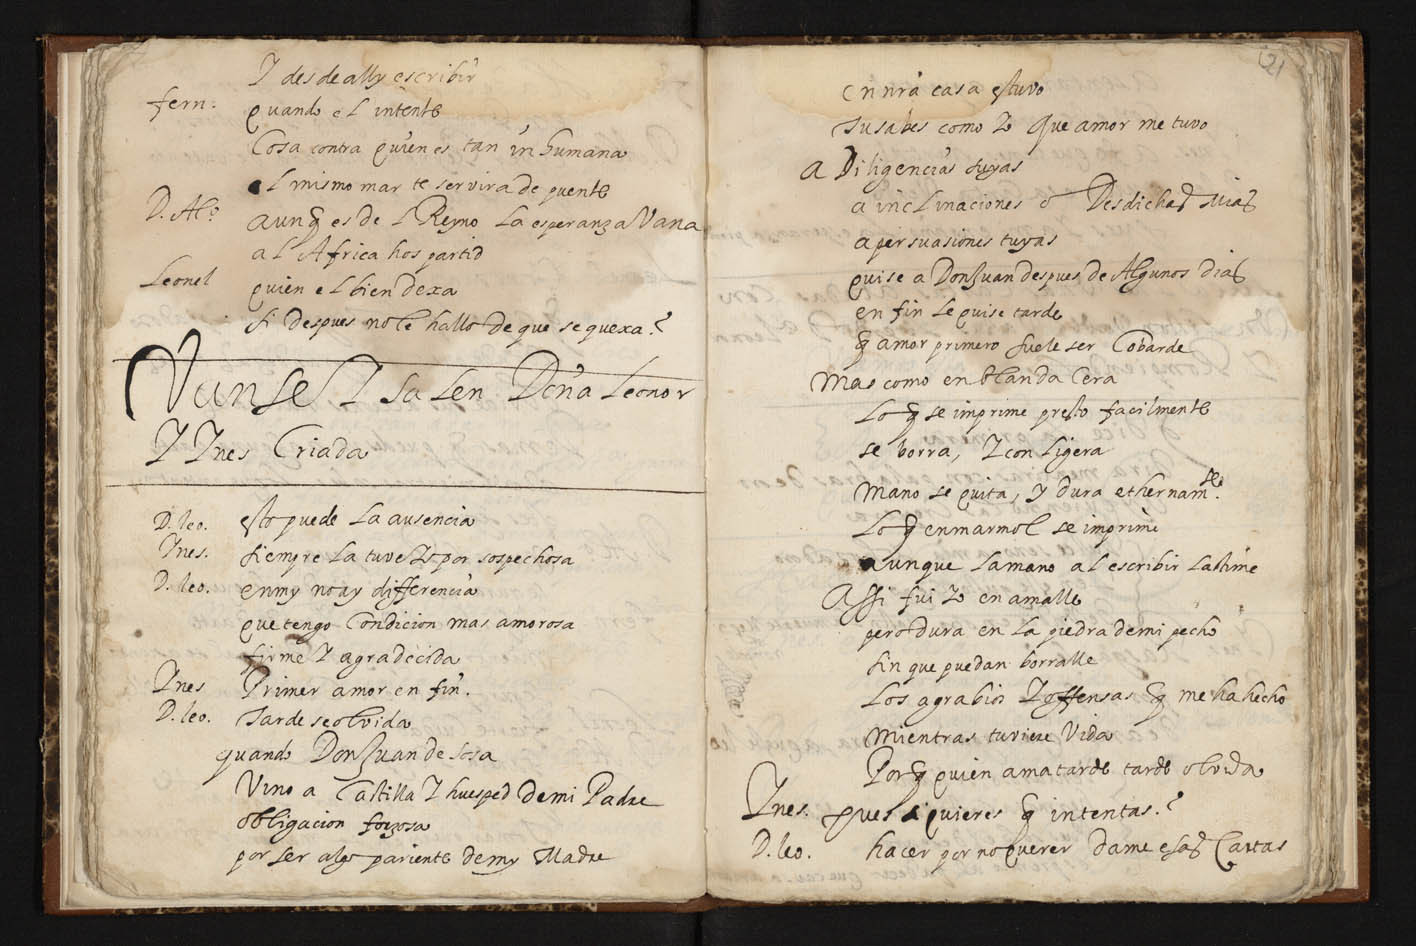 Y desde ally escribir
fern. quando el intente
Cosa contra quien es tan inhumana
el mismo mar te servira de puente
D. Alº aunq̃ es de l Reyno la esperanza Vana
a l Africa hos partid
Leonel quien el bien dexa
si despues no le hallo de que se quexa?
Vanse Y salen Doña Leonor
Y Ynes Criada
D. leo. esto puede la ausencia
Ynes. siempre la tuve Yo por sospechosa
D. leo. en my no ay differencia
que tengo Condicion mas amorosa
firme Y agradecida
Ynes Primer amor en fin.
D. leo. tarde se olvida
quando Don Juan de Sosa
Vino a Castilla Y huesped de mi Padre
obligacion forzosa
por ser algo pariente de my Madre
21
en nr̃a casa estuvo
tu sabes como Yo Que amor me tuvo
a Diligencias tuyas
a inclinaciones o Desdichas mias
a persuasiones tuyas
quise a Don Juan despues de Algunos dias
en fin le quise tarde
q̃ amor primero suele ser Cobarde
Mas como en blanda Cera
lo q̃ se imprime presto facilmente
se borra, Y con ligera
mano se quita, y dura ethernamte.
lo q̃ en marmol se imprime
aunque la mano al escribir lastime
Assi fui Yo en amalle
pero dura en la piedra de mi pecho
sin que puedan borralle
los agrabios Y offensas q̃ me ha hecho
mientras tuviere Vida
Porq̃ quien ama tarde tarde olvida
Ynes. pues si quieres q̃ intentas?
D. leo. hacer por no querer dame esas Cartas